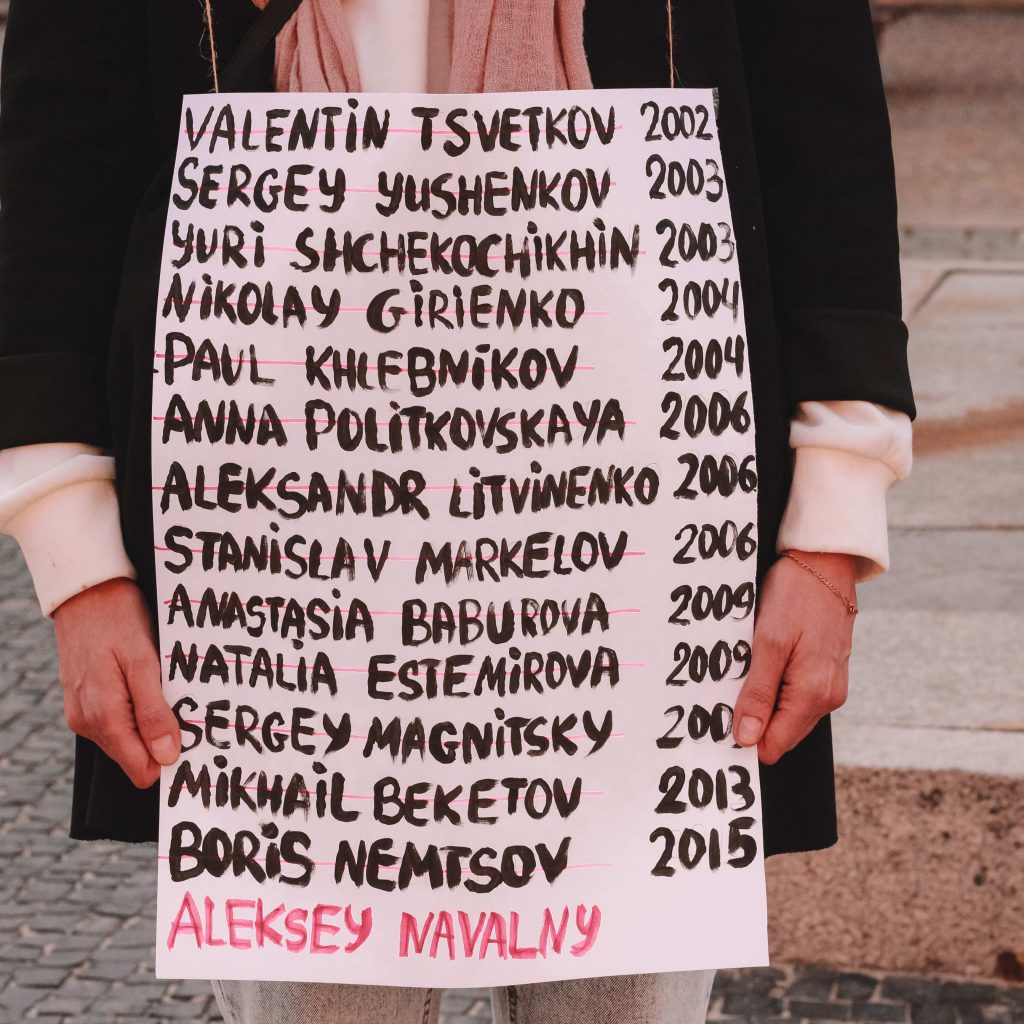 VALENTIN TSVETKOV 2002
SERGEY YUSHENKOV 2003
YURI SHCHEKOCHIKHIN 2003
NIKOLAY GIRIENKO 2004
PAUL KHLEBNIKOV 2004
ANNA POLITKOVSKAYA 2006
ALEKSANDR LITVINENKO 2006
STANISLAV MARKELOV 2006
ANASTASIA BABUROVA 2009
NATALIA ESTEMIROVA 2009
SERGEY MAGNITSKY
MIKHAIL BEKETOV 2013
BORIS NEMTSOV 2015
ALEKSEY NAVALNY